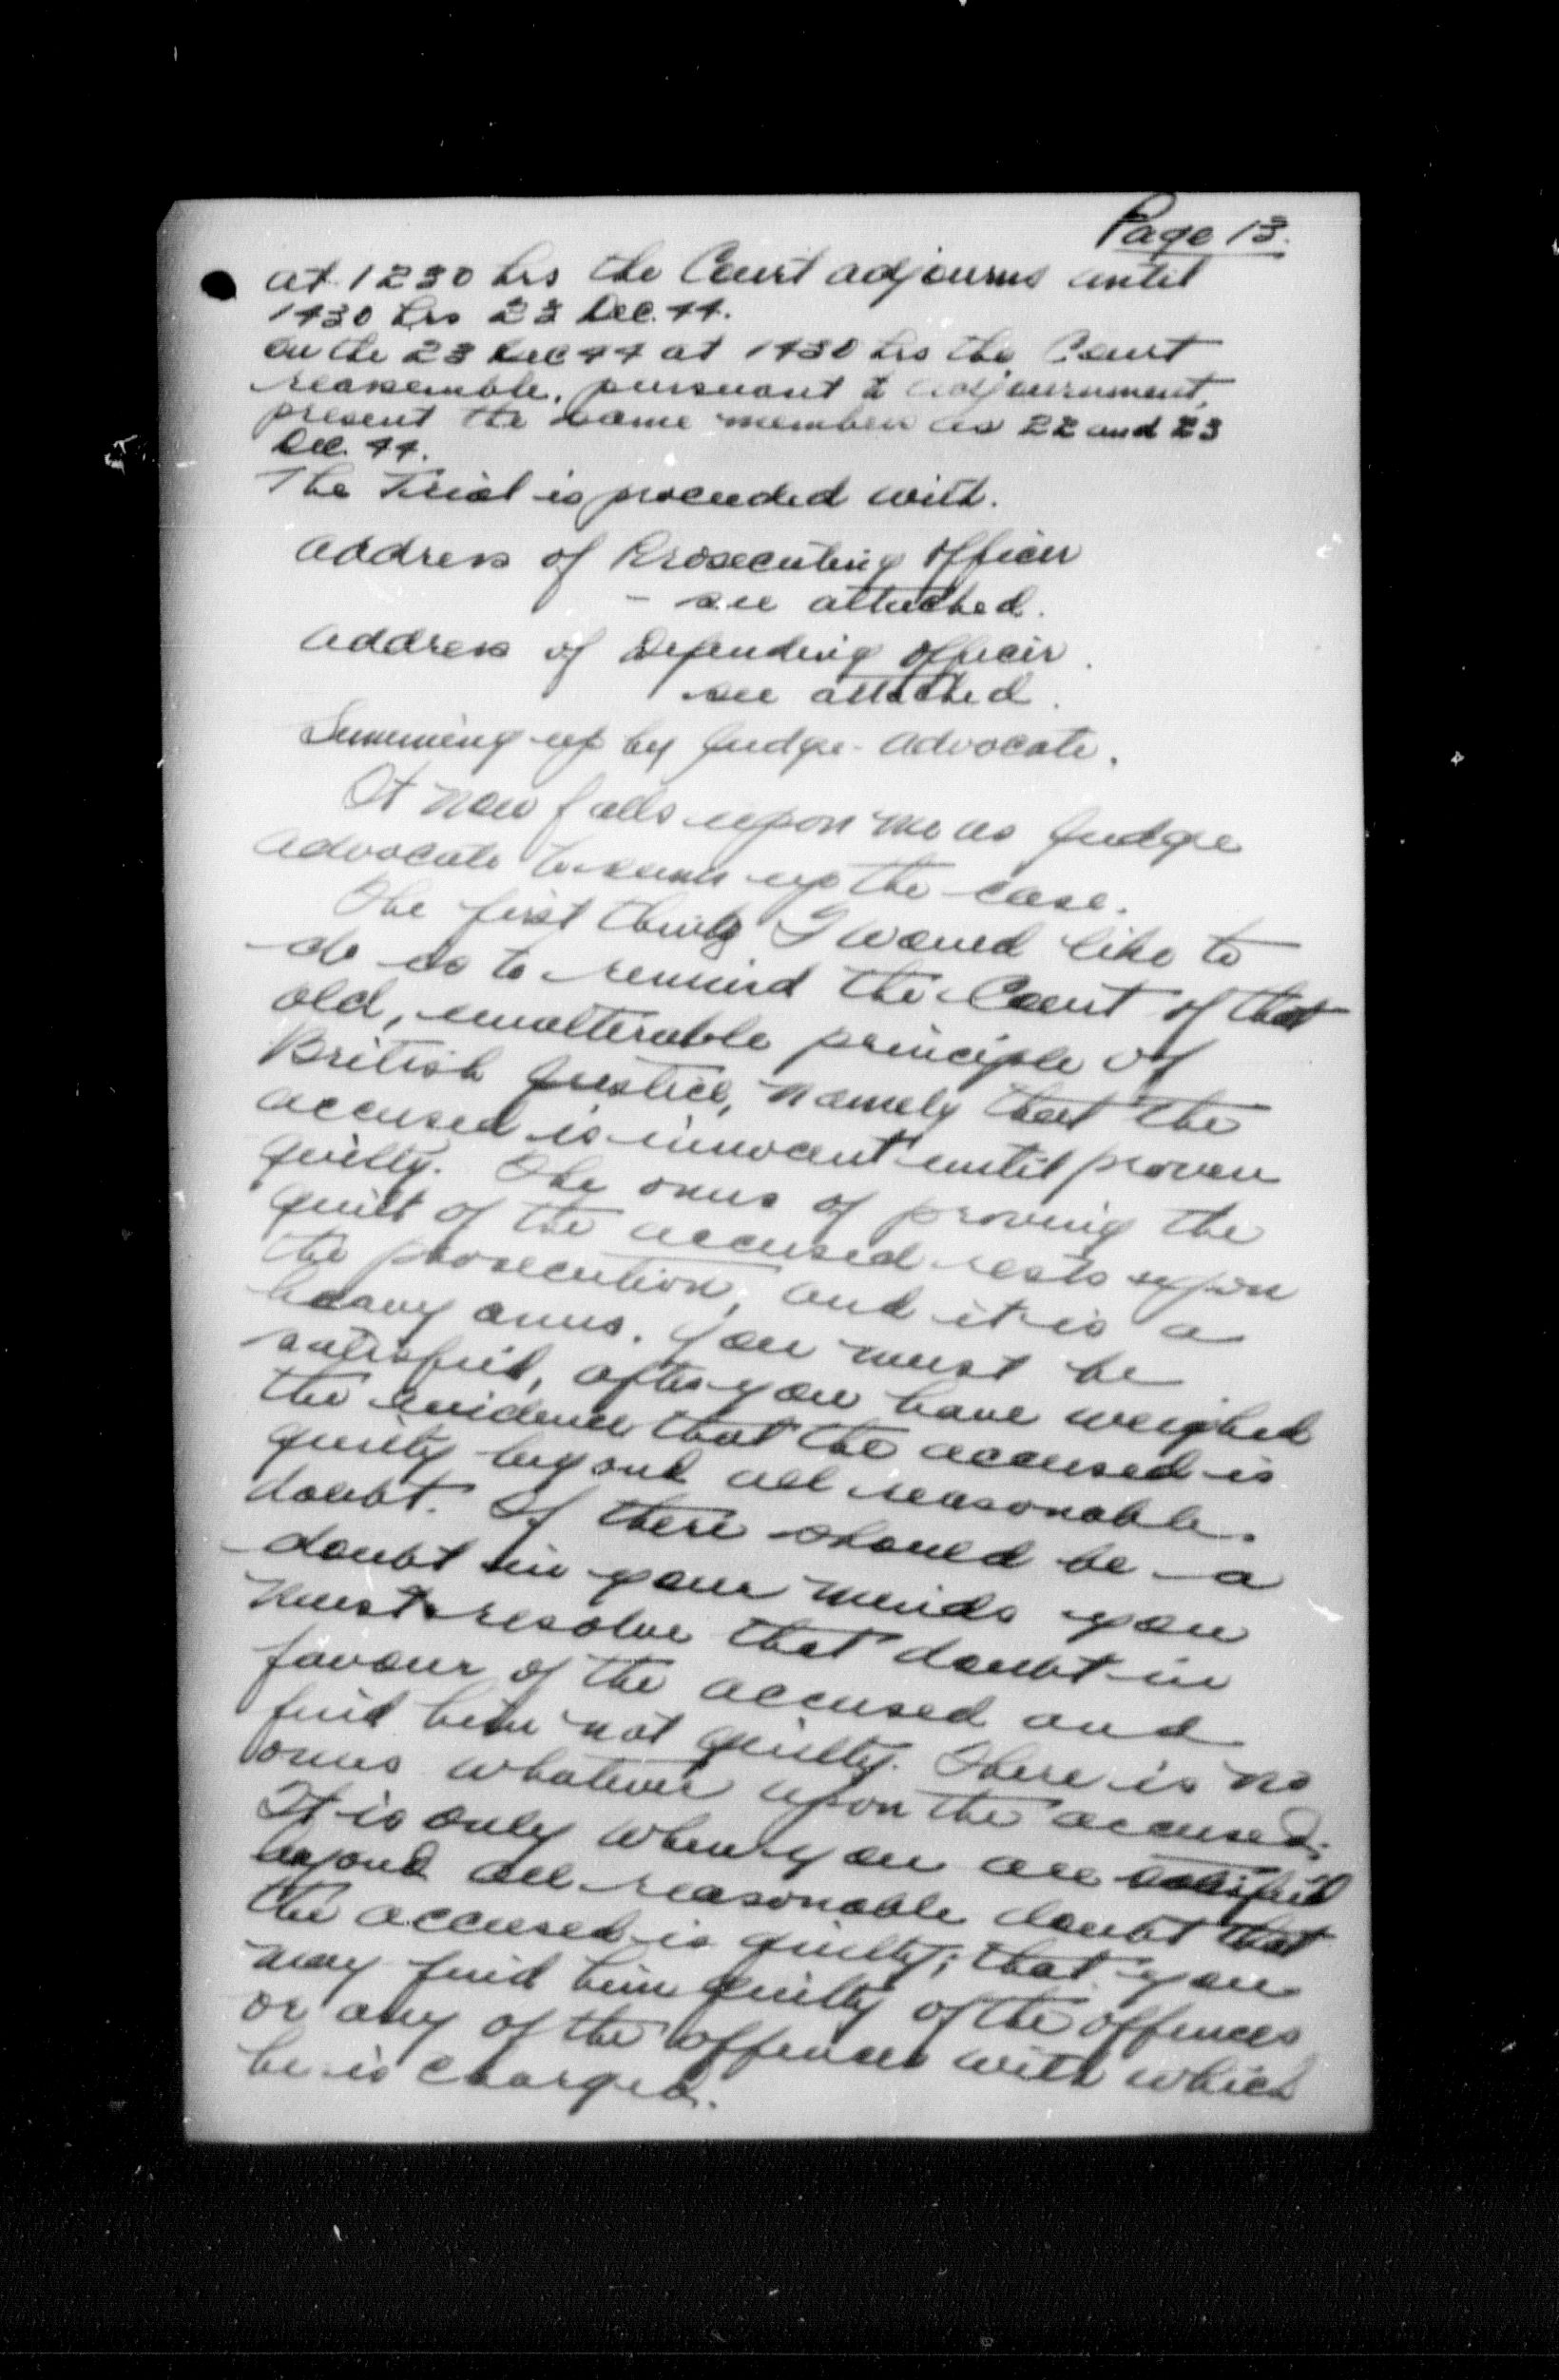 Page 13.
at 1230 hrs the Court adjourns until
1430 hrs 23 Dec. 44.
On the 23 Dec 44 at 1430 hrs the Court
reassemble, pursuant to adjournment,
present the same members as 22 and 23
Dec. 44.
The Trial is proceeded with.
Address of Prosecuting Officer
- see attached.
Address of Defending Officer.
see attached.
Summing up by Judge-Advocate.
It now falls upon me as Judge
Advocate to sum up the case.
The first thing I would like to
do is to remind the Court of that
old, unalterable principle of
British Justice, namely that the
accused is innocent until proven
guilty. The onus of proving the
guilt of the accused rests upon
the prosecution, and it is a
heavy onus. You must be
satisfied, after you have weighed
the evidence that the accused is
guilty beyond all reasonable
doubt. If there should be a
doubt in your minds you
must resolve that doubt in
favour of the accused and
find him not guilty. There is no
onus whatever upon the accused.
It is only when you are satisfied
beyond all reasonable doubt that
the accused is guilty; that you
may find him guilty of the offences
or any of the offences with which
he is charged.